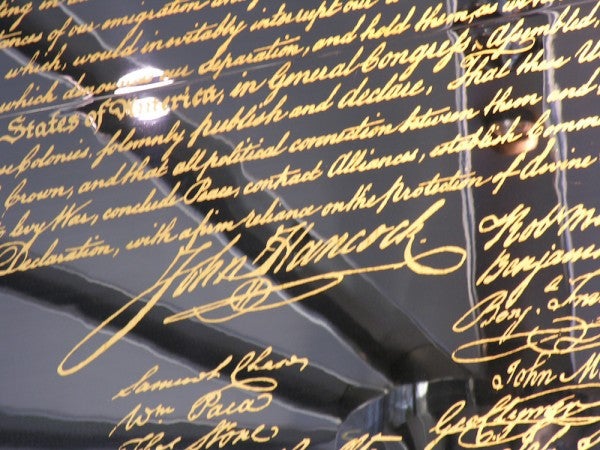 ting in
tances of our emigration and
which, would inevitably interrupt our
which denounces our Separation, and hold them, as we
States of America, in General Congress, Assembled,
Colonies, solemnly publish and declare, That these U
Crown, and that all political connection between them and
levy War, conclude Peace, contract Alliances, establish Comme
Declaration, with a firm reliance on the Protection of divine
John Hancock
Robt M
Benjam
Benj. Fra
John M
Geo Clymer
Samuel Chase
Wm Paca
Thos Stone